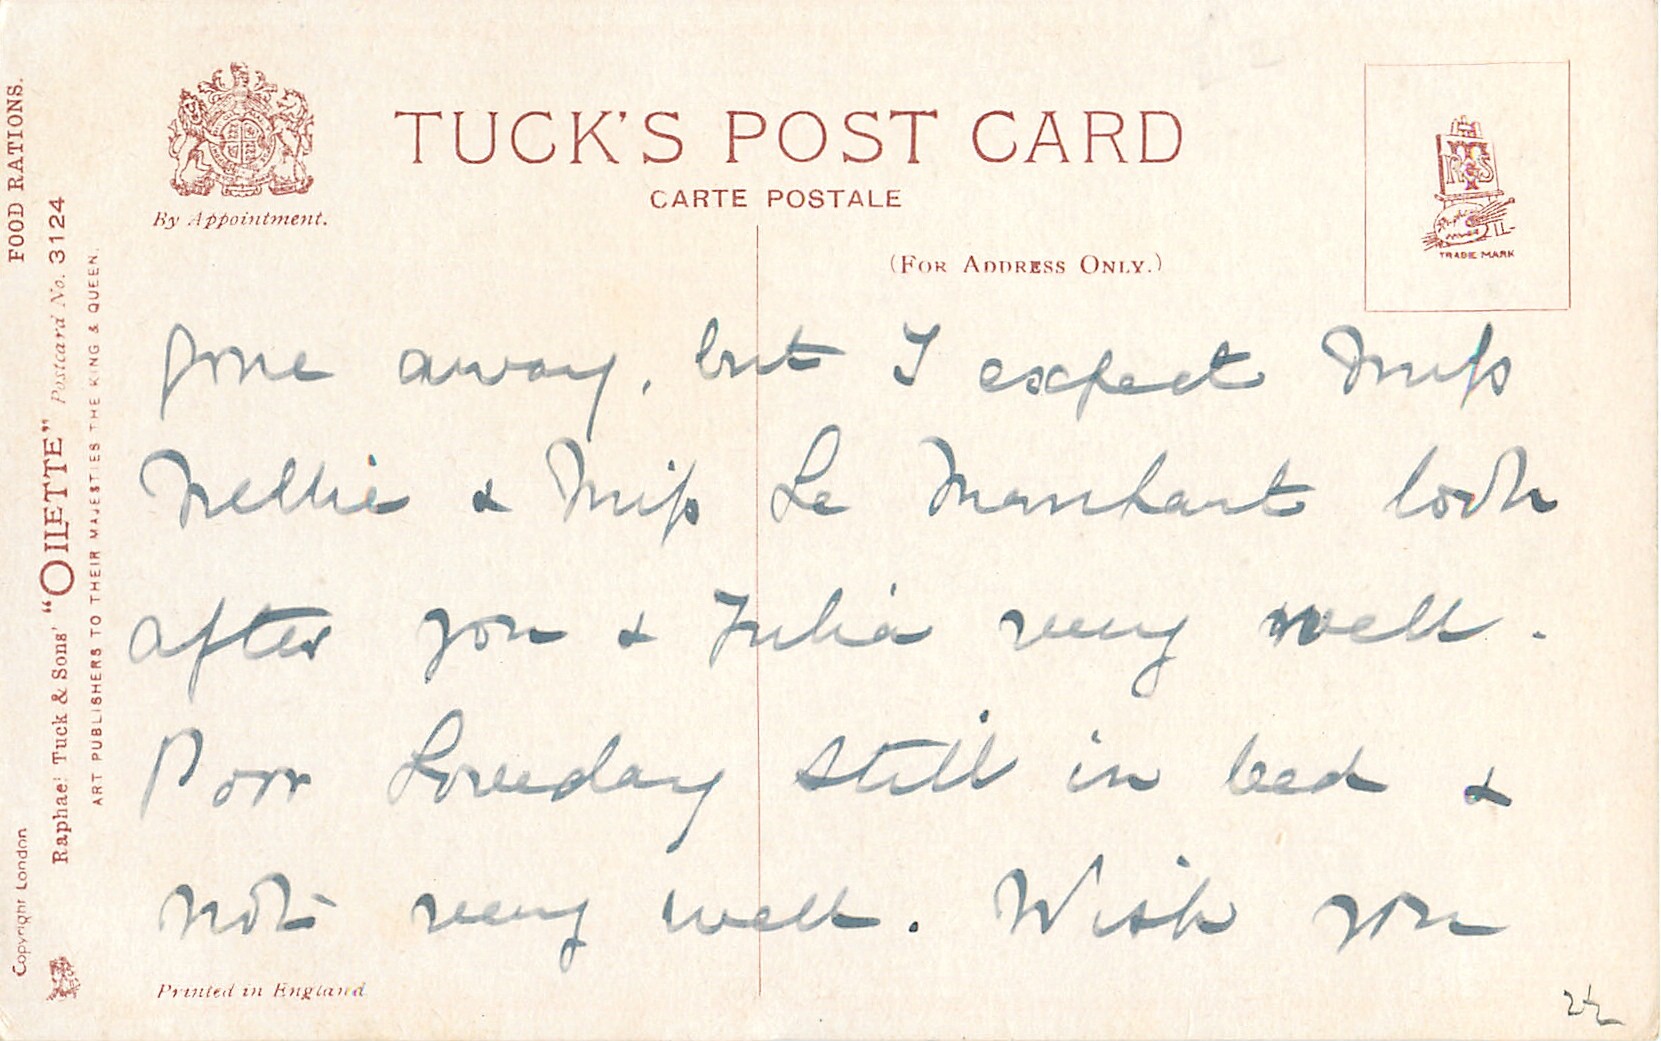 TUCK'S POST CARD
CARTE POSTALE
By Appointment.
(FOR ADDRESS ONLY.)
TRADE MARK
gone away, but I expect Miss
Nellie & Miss Le Marchant look
after you & Julia very well.
Poor Loveday still in bed &
not very well. Wish you
Printed in England
FOOD RATIONS.
Raphael Tuck & Sons' "OILETTE" Postcard No. 3124
ART PUBLISHERS TO THEIR MAJESTIES THE KING & QUEEN.
Copyright London